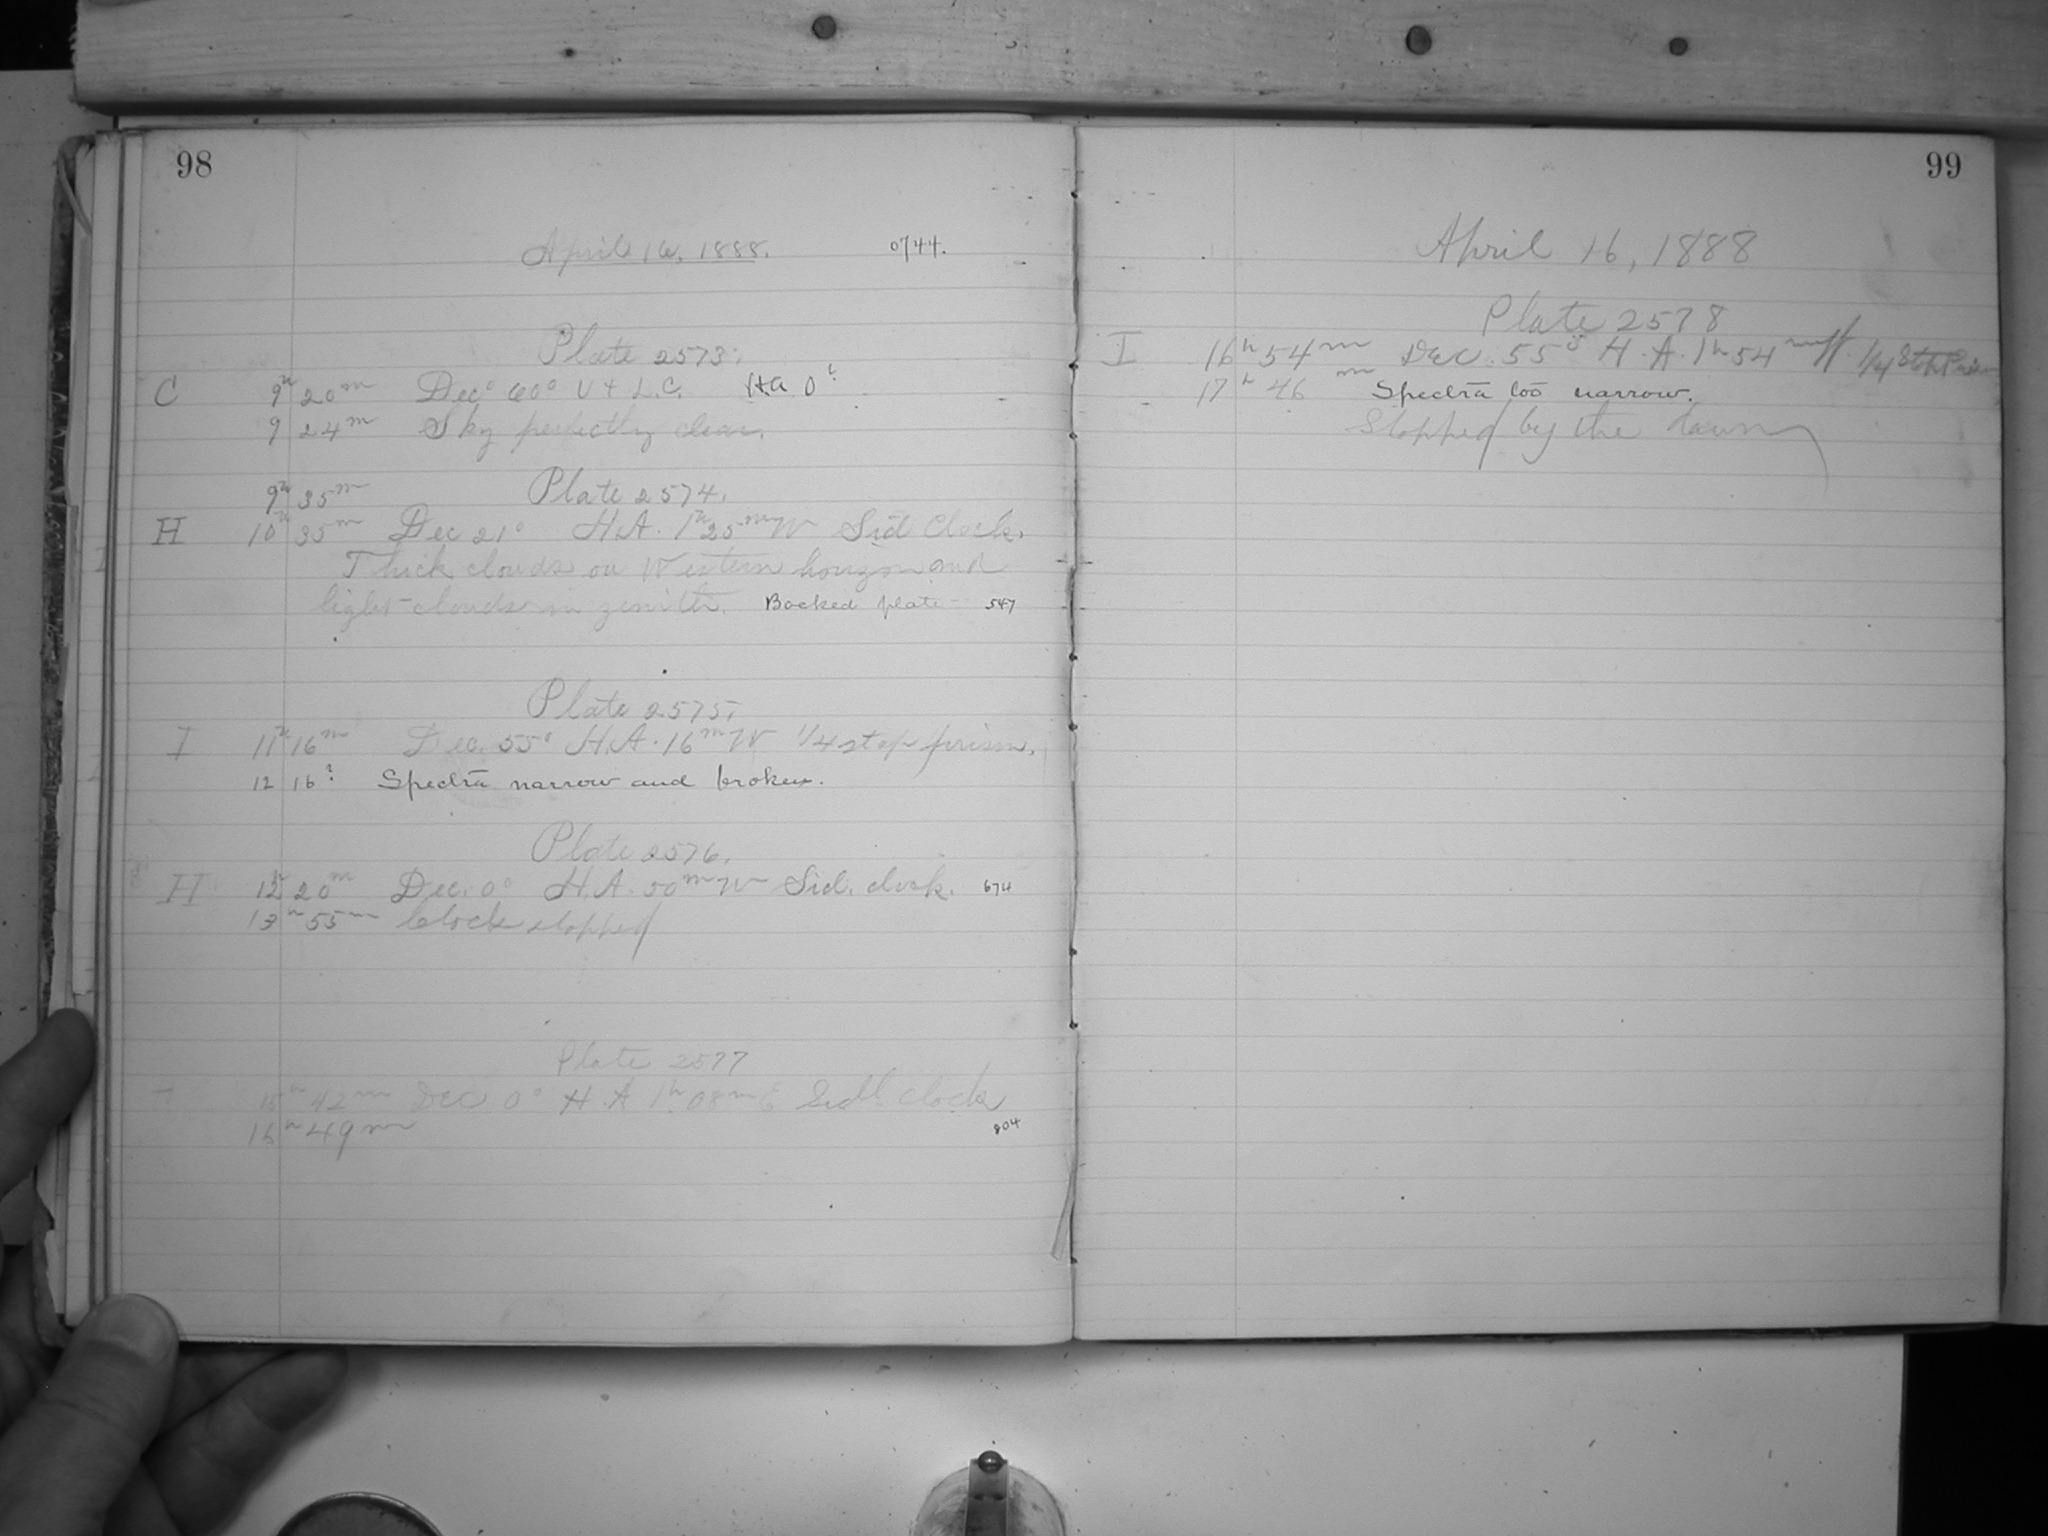 98
April 16, 1888. 0744.
Plate 2573.
C 9h 20m Dec 60° U + L.C. HA 0?
9 24m Sky perfectly clear.
9h 35m Plate 2574.
H 10h 35m Dec 21° H.A. 1h 25m W Sid Clock.
Thick clouds on Western horizon and
light clouds in zenith. Backed plate 547
Plate 2575.
I 11h 16m Dec. 55° H.A. 16m W 1/4 stop prism.
12 16? Spectra narrow and broken.
Plate 2576.
H 12h 20m Dec. 0° H.A. 50m W Sid. clock. 674
13h 55m Clock stopped
Plate 2577
15h 42m Dec 0° H.A 1h 08m E Sidl clock
16h 49m 804
99
April 16, 1888
Plate 2578
I 16h 54m Dec. 55° H.A. 1h 54m W. 1/4 Stop Prism
17h 46m Spectra too narrow.
Stopped by the dawn